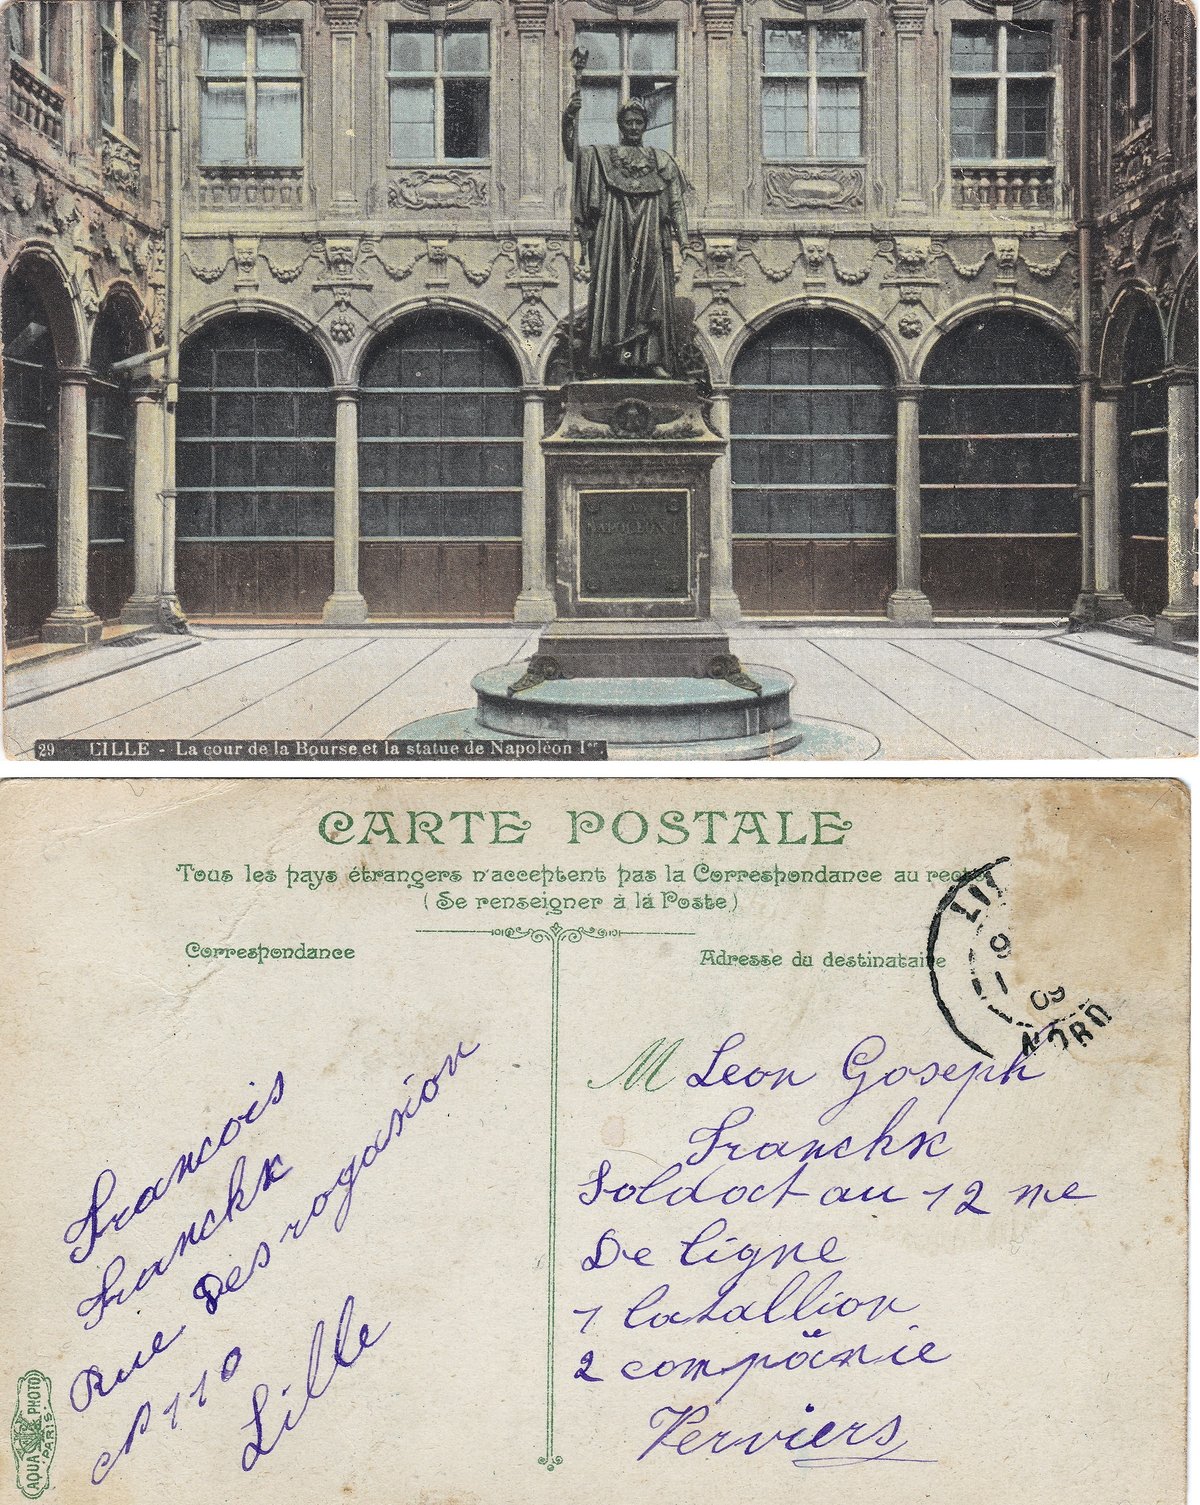 NAPOLEON I
29 LILLE - La cour de la Bourse et la statue de Napoléon Ier.
CARTE POSTALE
Tous les pays étrangers n'acceptent pas la Correspondance au recto
(Se renseigner à la Poste)
Correspondance
Adresse du destinataire
LIL
9
1
09
NORD
Francois
Franckx
Rue Des rogasion
N 110
Lille
M Leon Goseph
Franckx
Soldat au 12 me
De ligne
1 batallion
2 compänie
Verviers
AQUA PHOTO
PARIS